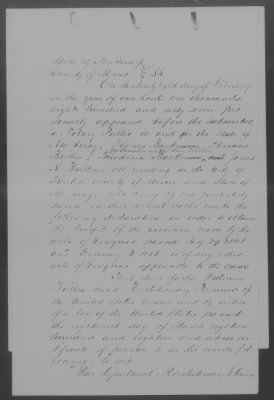 State of New Jersey
County of Mercer } SS.
On this twenty eighth day of February
in the year of our Lord one thousand
eight hundred and sixty seven per
sonally appeared before the subscriber
a Notary Public in and for the State of
New Jersey, Thomas
and James
N. all residing in the city of
Trenton, county of Mercer and State of
N. Jersey, who being by me first duly
sworn on their several oaths make the
following declaration in order to obtain
the benefit of the provision made by the
acts of Congress passed July
and February 3. 1853 or of any other
acts of Congress applicable to the case
That their father William
was a Revolutionary Pensioner of
the United States under and by virtue
of a law of the United States passed
the eighteenth day of March eighteen
hundred and eighteen and whose cer
tificate of pension is in the words fol
lowing to wit:
War Department Revolutionary Claim